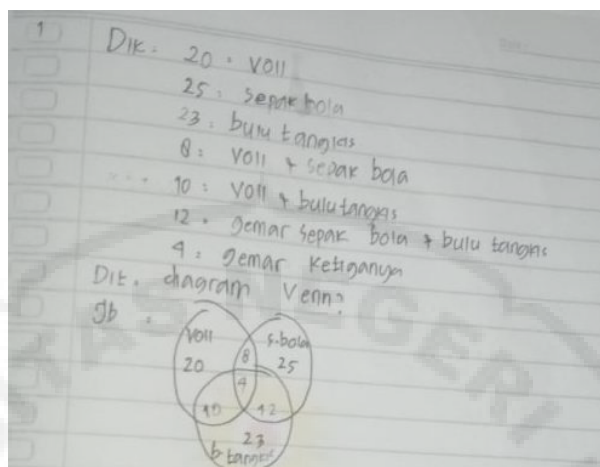 1
Dik : 20 = voli
25 : sepak bola
23 : bulu tangkis
8 : voli + sepak bola
10 : voli + bulutangkis
12 = gemar sepak bola + bulu tangkis
4 : gemar ketiganya
Dit. diagram Venn?
Jb :
voli
s.bola
20
8
25
4
10
12
23
b. tangkis
TAS NEGERI